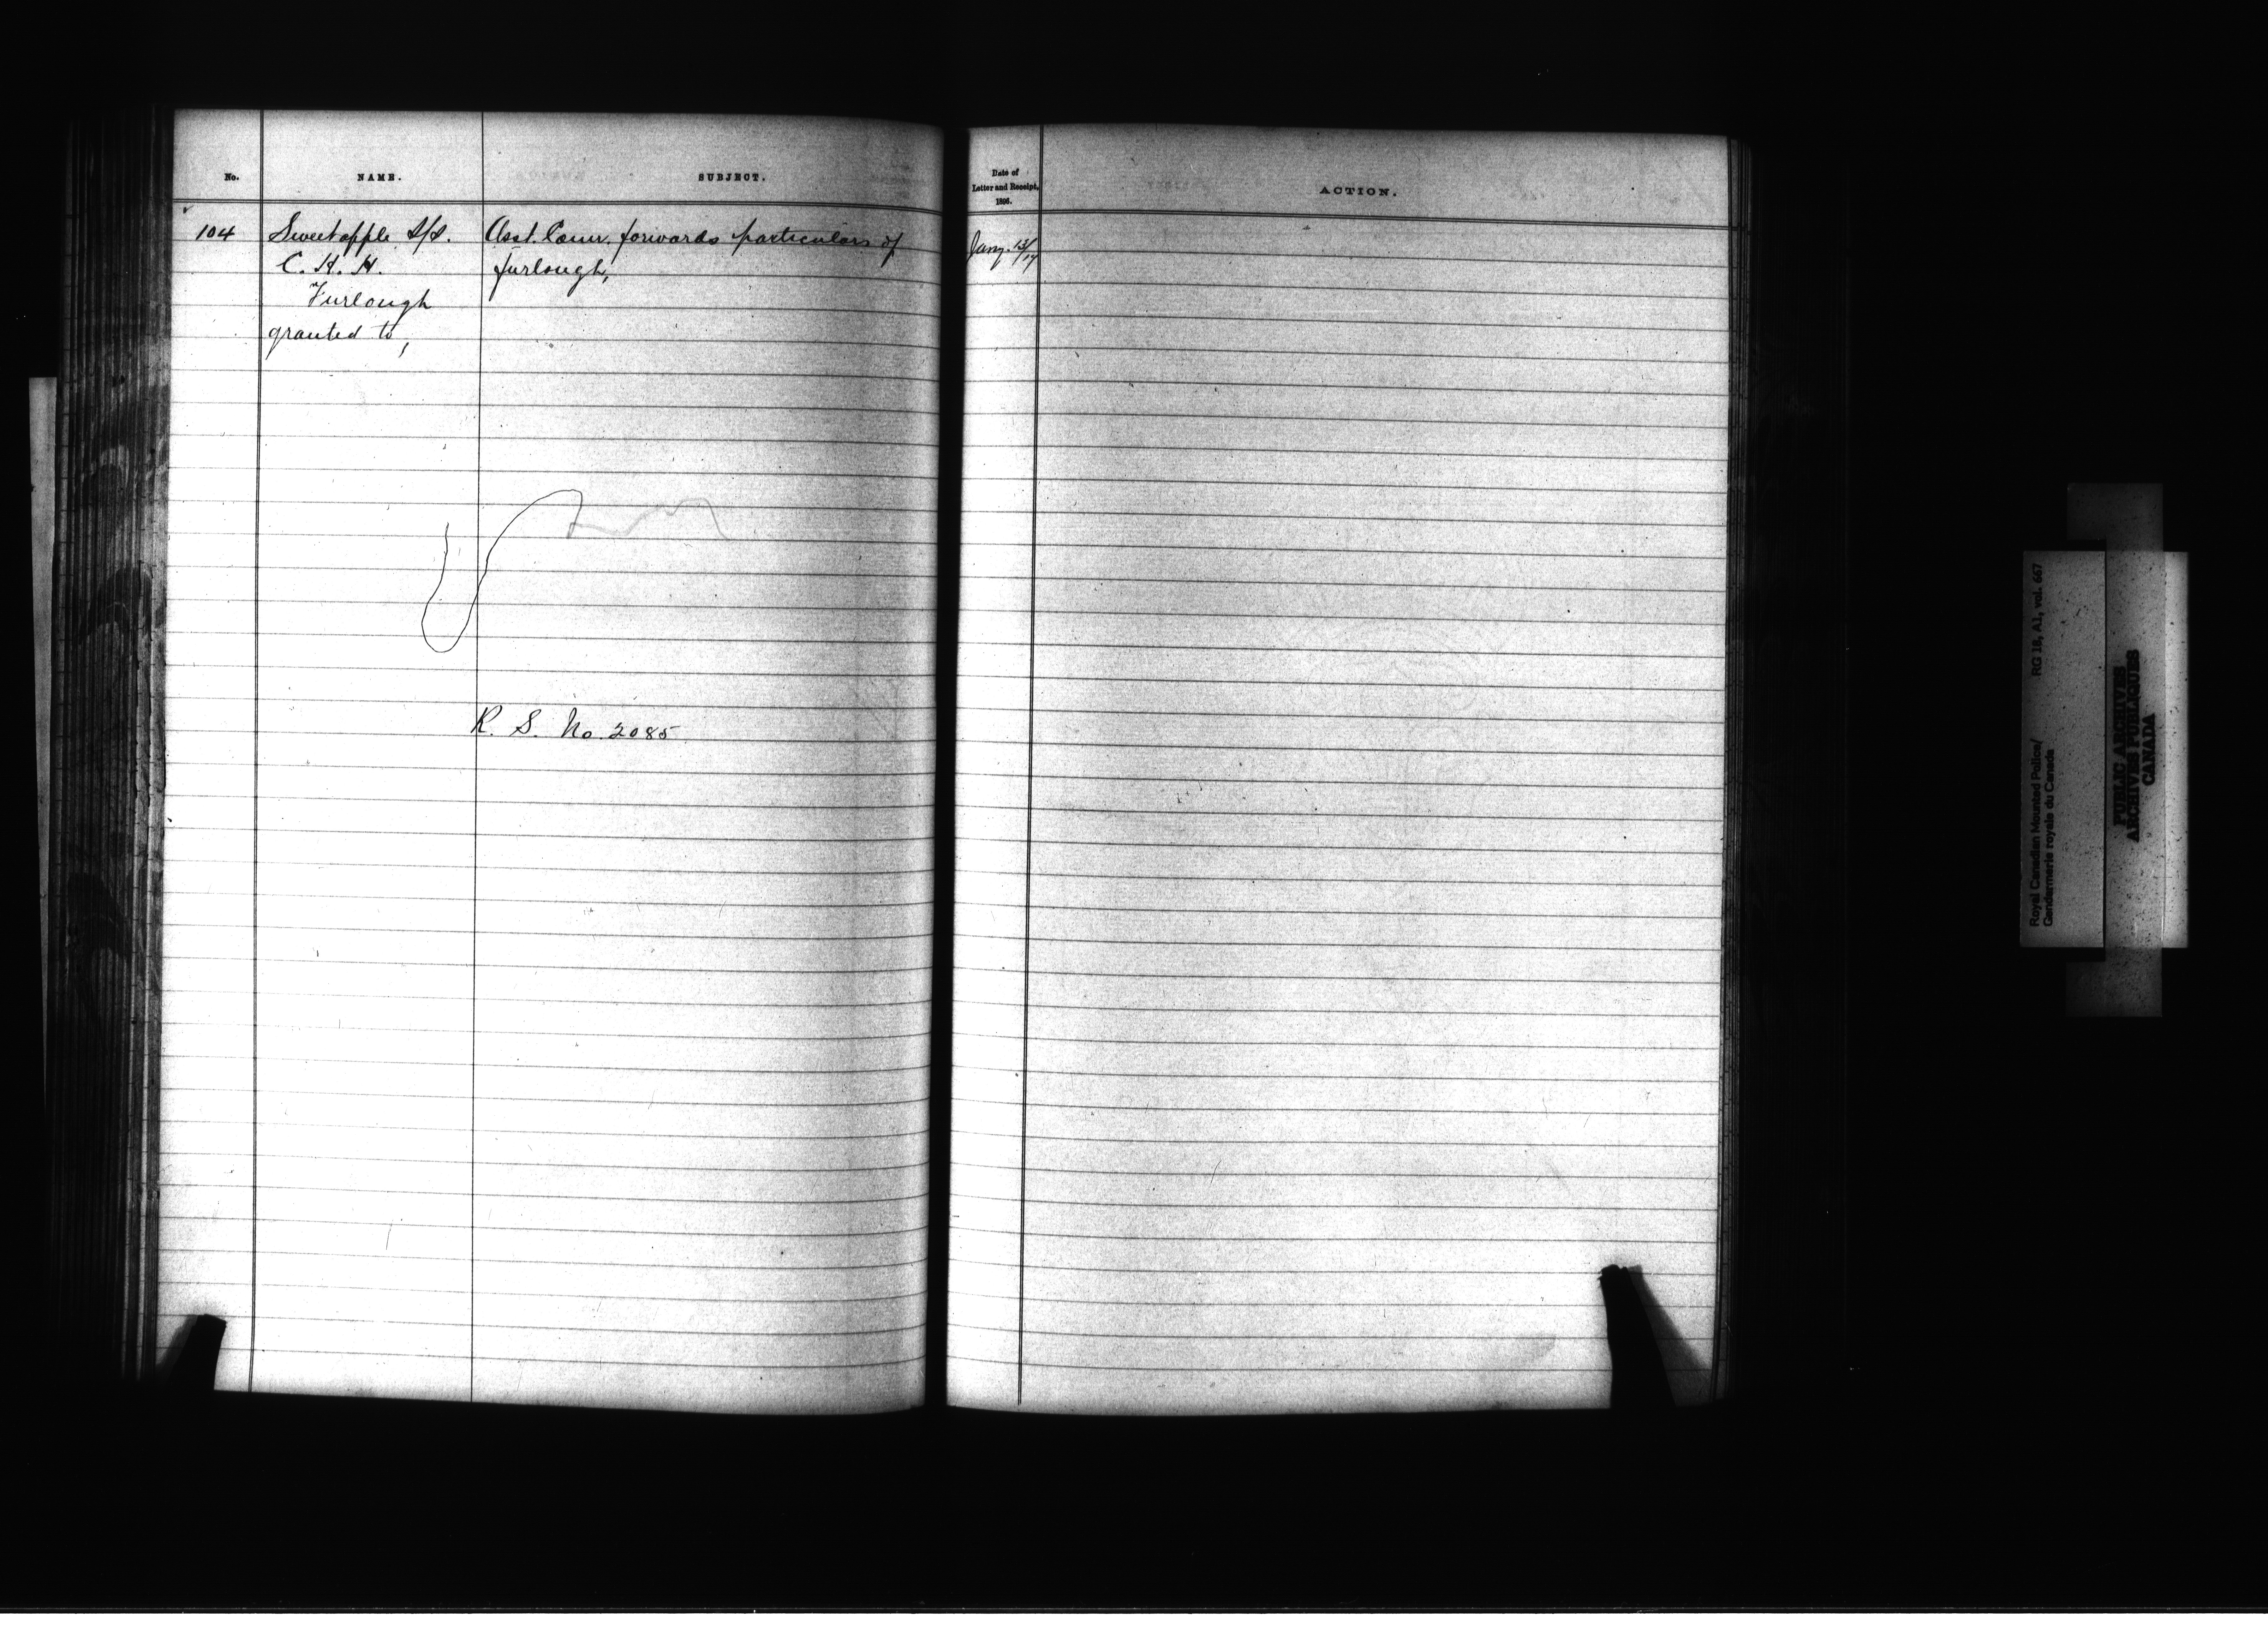 No.
NAME.
SUBJECT.
104
Sweetapple S/S.
C. H. H.
Furlough
granted to,
Asst. Comr. forwards particulars of
furlough,
R. S. No. 2085
Date of
Letter and Receipt,
1896.
ACTION.
Jany. 13/17
Royal Canadian Mounted Police/
Gendarmerie royale du Canada
RG 18, A1, vol. 667
PUBLIC ARCHIVES
ARCHIVES PUBLIQUES
CANADA